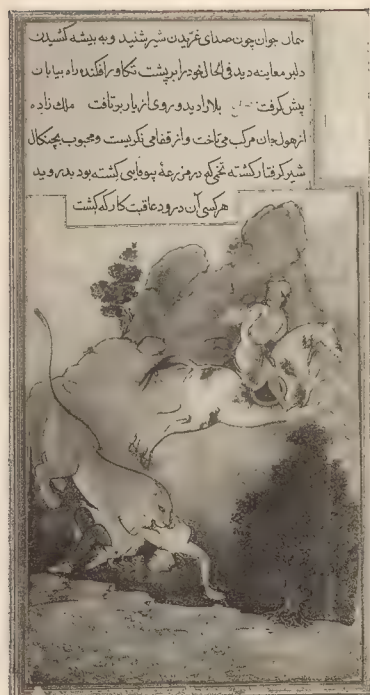 همان جوان چون صدای غریدن شیر شنید و به بیشه کشیدن
دلبر معاینه دید فی الحال خود را بر پشت تکاور افکنده راه بیابان
پیش گرفت بلا را دید و روی از یار برتافت ملک زاده
از هول جان مرکب می تاخت و از قفا می نگریست و محبوب بچنگال
شیر گرفتار گشته تخمی که در مزرعهٔ بیوفایی کشته بود بدروید
هر کسی آن درود عاقبت کار که کشت